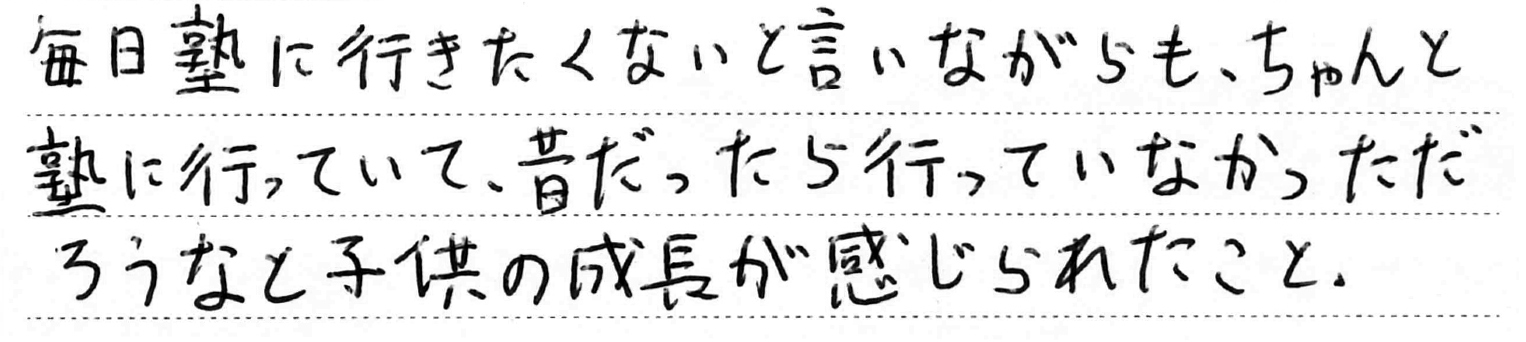 毎日塾に行きたくないと言いながらも、ちゃんと
塾に行っていて、昔だったら行っていなかっただ
ろうなと子供の成長が感じられたこと.